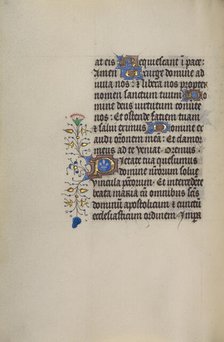 at eis Requiescant i pace
Amen Exurge domine ad
iuua nos : et libera nos propter
nomen sanctum tuum Do
mine deus uirtutum conuerte
nos : Et ostende faciem tuam et
salui erimus Domine ex
audi oronem mea : Et clamor
meus ad te ueniat Oremus
Pietate tua quesumus
domine nrorum solue
uincula pctorum Et intercedete
beata maria cum omnibus scis
domnu apostolicum et cunctu
ecclesiasticum ordinem